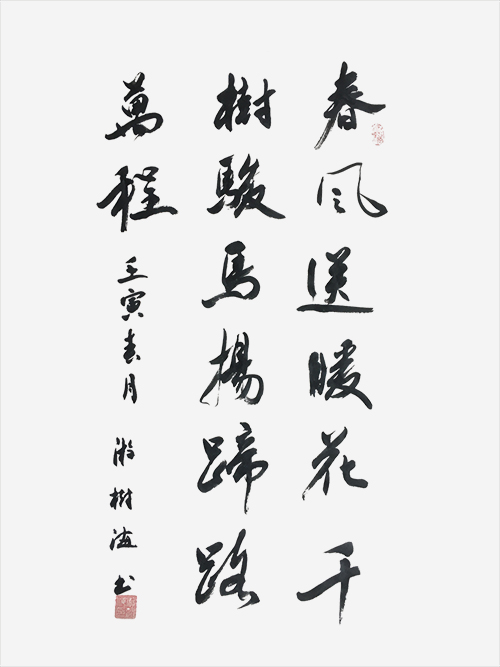 春風送暖花千
樹駿馬揚蹄路
萬程
壬寅春月
樹海书